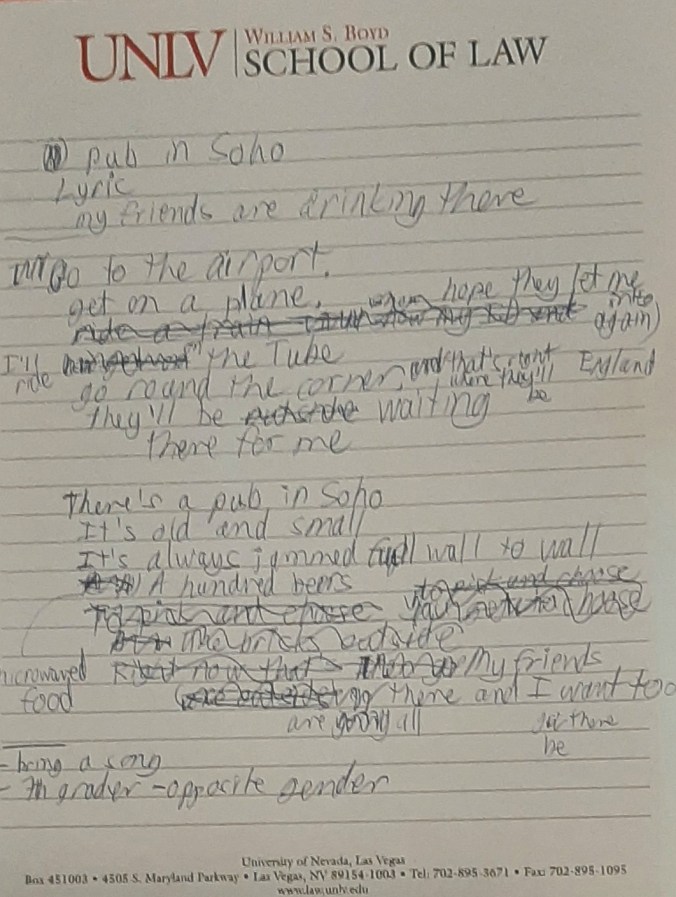 UNLV
WILLIAM S. BOYD
SCHOOL OF LAW
pub in Soho
Lyric
my friends are drinking there
Go to the airport.
get on a plane. hope they let me
into
again)
I'll ride the Tube
go round the corner and that's England
where they'll be
They'll be waiting
there for me
There's a pub in Soho
It's old and small
It's always jammed full wall to wall
A hundred beers
to pick and choose
to pick and choose
the bricks outside
microwaved food
Right now that's My friends
there and I want too
are all
be there
- bring a song
- 7th grader - opposite gender
University of Nevada, Las Vegas
Box 451003 • 4505 S. Maryland Parkway • Las Vegas, NV 89154-1003 • Tel: 702-895-3671 • Fax: 702-895-1095
www.law.unlv.edu